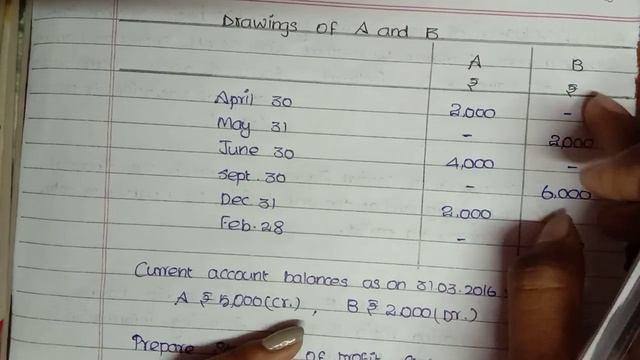 Drawings of A and B
A B
₹ ₹
April 30 2,000 -
May 31 - 2,000
June 30 4,000 -
Sept. 30 - 6,000
Dec 31 2,000
Feb. 28 -
Current account balances as on 31.03.2016
A ₹ 5,000 (Cr.), B ₹ 2,000 (Dr.)
Prepare of profit